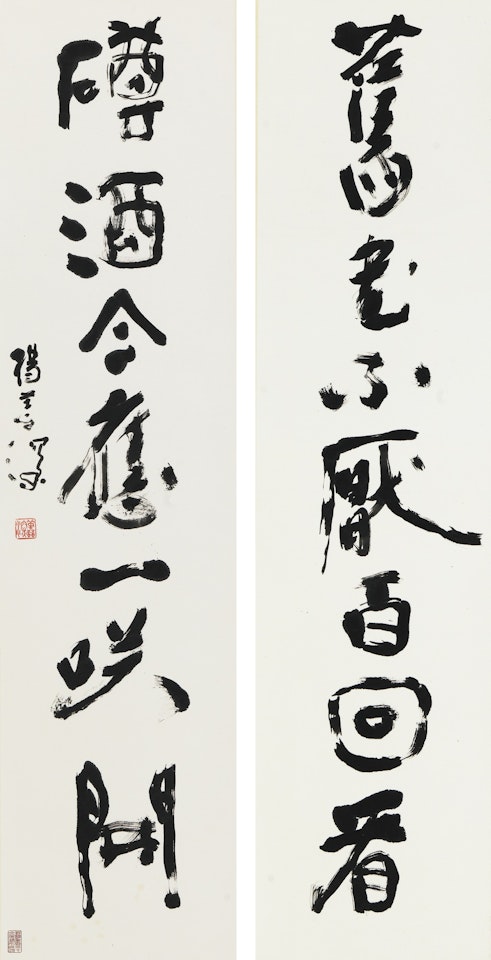 舊書不厭百回看
酒今應一咲開
楊善深